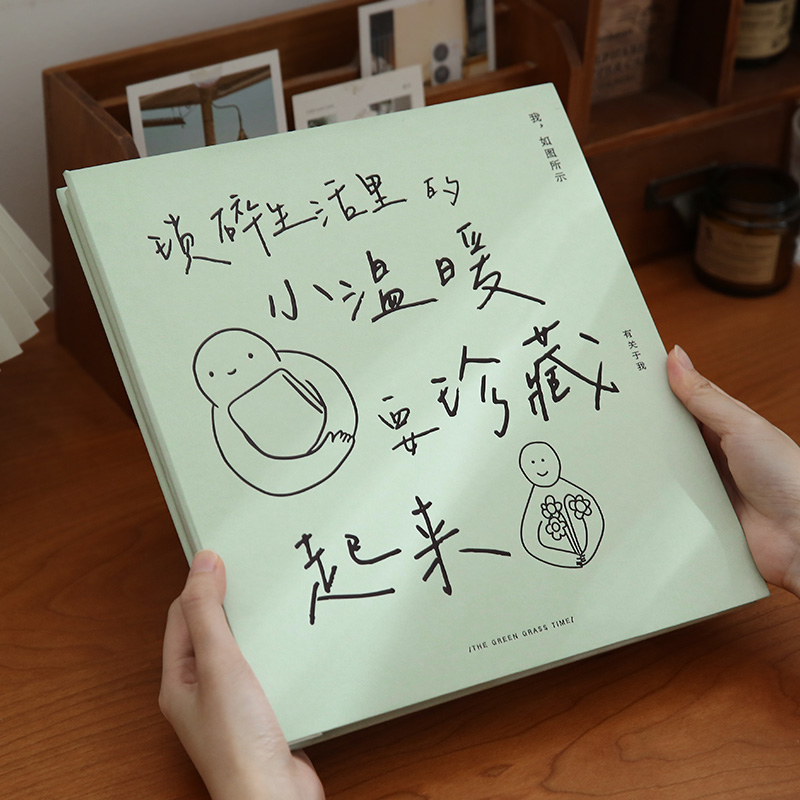 我，如图所示
琐碎生活里的
小温暖
有关于我
要珍藏
起来
/THE GREEN GRASS TIME/